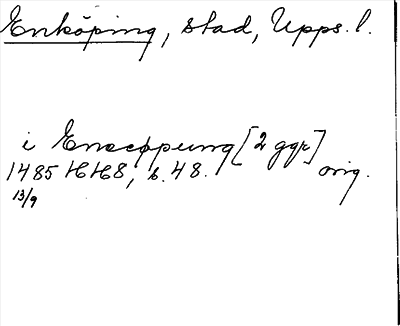 Enköping, stad, Upps. l.
i Enecøpung [2 ggr]
1485 HH8, s. 48. orig.
13/9